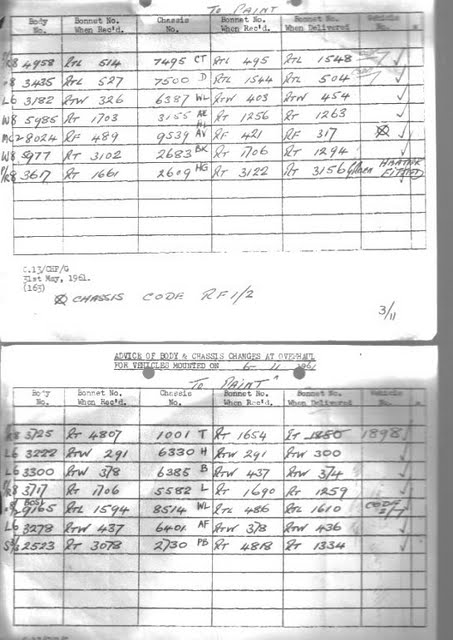 TO PAINT
Body No. Bonnet No. When Rec'd. Chassis No. Bonnet No. When Rec'd. Bonnet No. When Delivered Vehicle No.
R8 4958 RTL 514 7495 CT RTL 495 RTL 1548 ✓
8 3435 RTL 527 7500 D RTL 1544 RTL 504 ✓
L6 3182 RTW 326 6387 WL RTW 403 RTW 454 ✓
W8 5985 RT 1703 3155 AE RT 1256 RT 1263 ✓
MC2 8024 RF 489 9539 AV RF 421 RF 317 ⊗ ✓
W8 5977 RT 3102 2683 BK RT 1706 RT 1294 ✓
P/R8 3617 RT 1661 2609 HG RT 3122 RT 3156 FITTED
C.13/CHF/G
31st May, 1961.
(163)
⊗ CHASSIS CODE RF1/2
3/11
ADVICE OF BODY & CHASSIS CHANGES AT OVERHAUL
FOR VEHICLES MOUNTED ON 6-11 1961
"TO PAINT"
Body No. Bonnet No. When Rec'd. Chassis No. Bonnet No. When Rec'd. Bonnet No. When Delivered Vehicle No.
R8 3725 RT 4807 1001 T RT 1654 RT 1880 1898 ✓
L6 3222 RTW 291 6330 H RTW 291 RTW 300 ✓
L6 3300 RTW 378 6385 B RTW 437 RTW 374 ✓
R8 3717 RT 1706 5582 L RT 1690 RT 1259 ✓
9165 RTL 1594 8514 WL RTL 486 RTL 1610 CODE 2/7 ✓
L6 3278 RTW 437 6401 AF RTW 378 RTW 436 ✓
S3/3 2523 RT 3078 2730 PB RT 4818 RT 1334 ✓